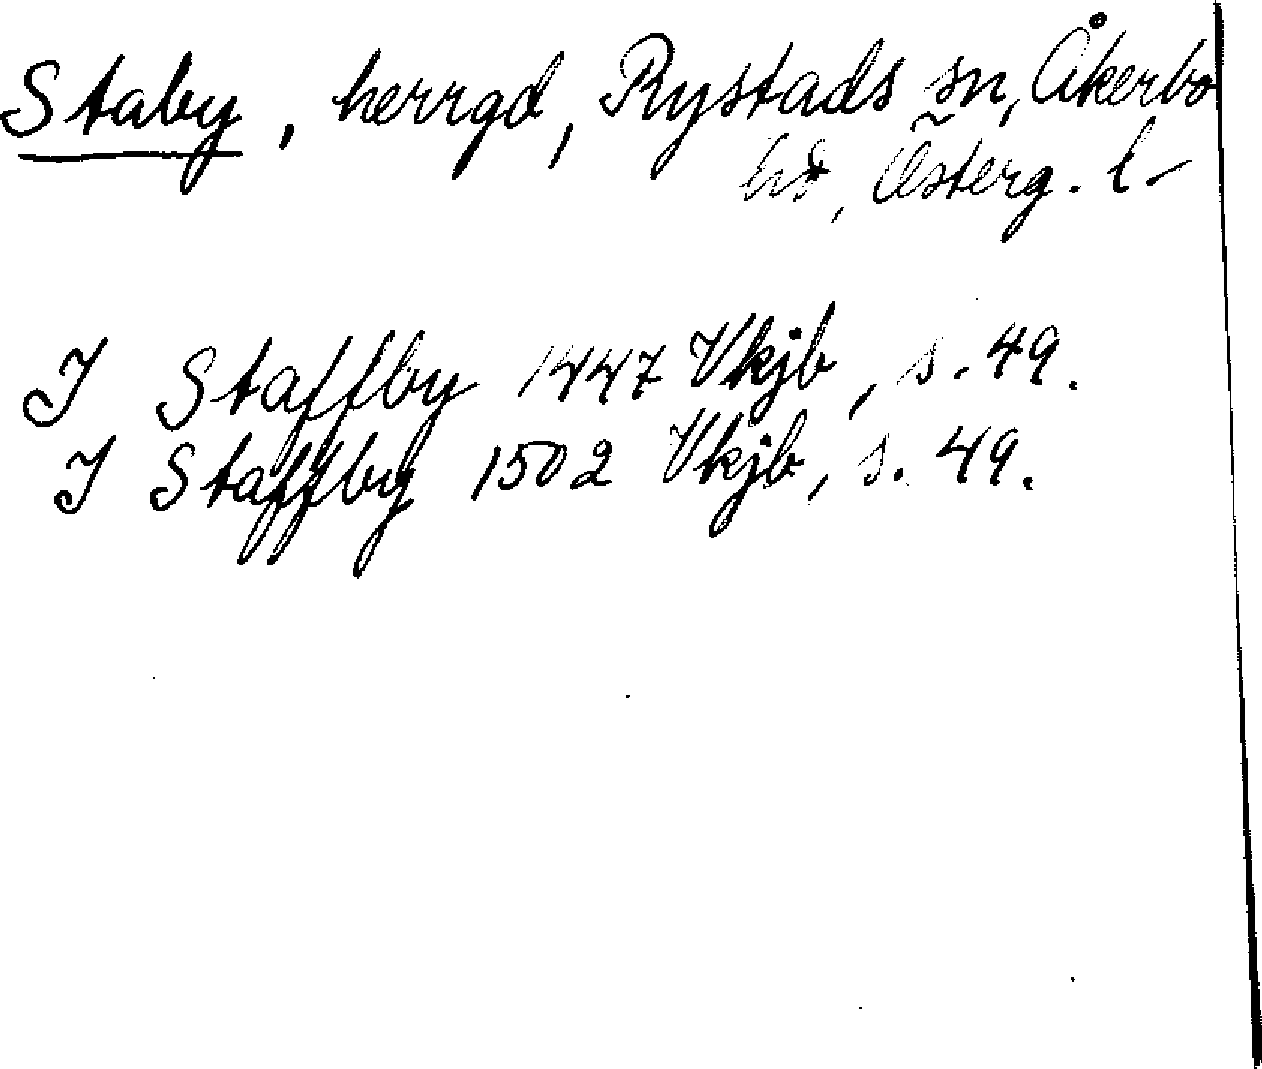 Staby, herrgd, Rystads sn, Åkerbo
hd, Österg. l.
I Staffby 1447 Vkjb, s. 49.
I Staffby 1502 Vkjb, s. 49.